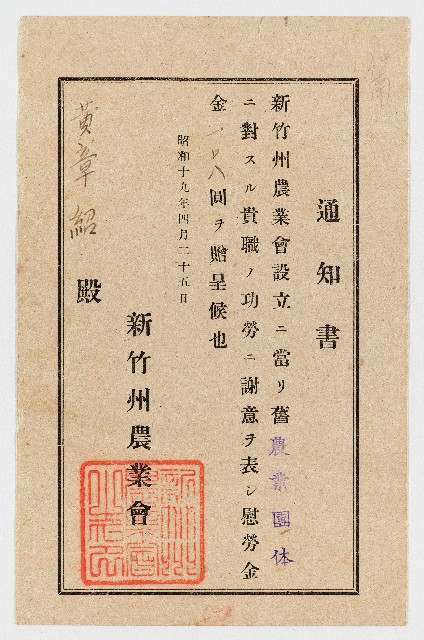 通知書
新竹州農業會設立ニ當リ舊農業團体
ニ對スル貴職ノ功勞ニ謝意ヲ表シ慰勞金
金一〇八圓ヲ贈呈候也
昭和十九年四月二十五日
新竹州農業會
黃章紹殿